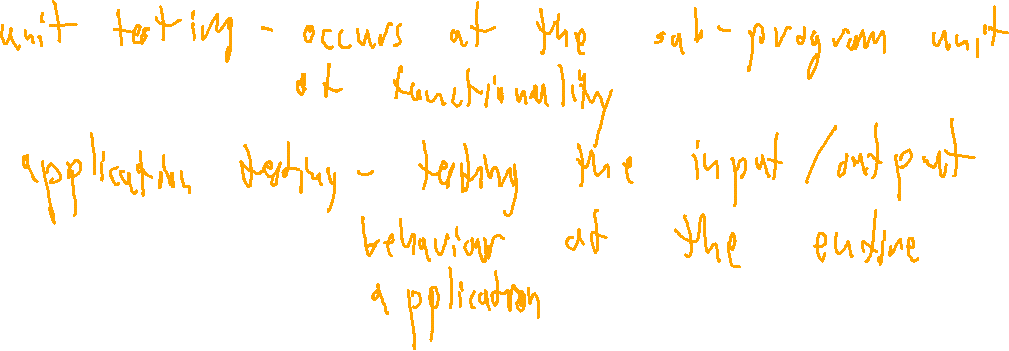 unit testing - occurs at the sub-program unit
of functionality
application testing - testing the input/output
behavior of the entire
application